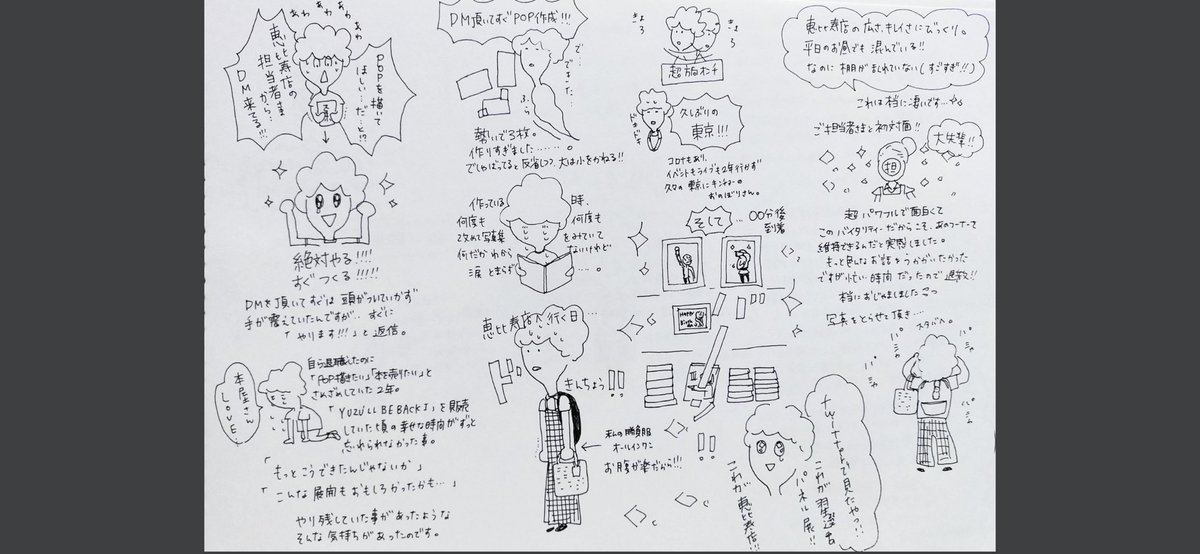 あわ
あわ
あわ
恵比寿店の
担当者さまから…
DM来てる!!!
POPを描いて
ほしい…だ…と!?
絶対やる!!!!
すぐつくる!!!!!
DMを頂いてすぐは頭がついていかず
手が震えていたんですが…すぐに
「やります!!!」と返信。
本屋さん
LOVE…
自ら退職したのに
「POP描きたい」「本を売りたい」と
さめざめしていた2年。
「YUZU'LL BE BACK I」を販売
していた頃の幸せな時間がずっと
忘れられなかった事。
「もっとこうできたんじゃないか」
「こんな展開もおもしろかったかも…」
やり残していた事があったような
そんな気持ちがあったのです。
DM頂いてすぐPOP作成!!!
で…
できた…
ふら
勢いで3枚。
作りすぎました………。
でしゃばってると反省しつつ、大は小をかねる!!
作っている時、
何度も何度も
改めて写真集をみていて
何だかわからないけれど
涙とまらず…。
恵比寿店へ行く日…
ド
きんちょう!!
私の勝負服
オールインワン
お腹が楽だから!!!
きょろ
きょろ
超方向オンチ
久しぶりの
東京!!!
ドキドキ
コロナもあり、
イベントもライブも2年行かず
久々の東京にキンチョーの
おのぼりさん。
そして
…〇〇分後
到着
!!
twitterで見たやつ!!
これが羽生選手
パネル展!!
これが恵比寿店!!
恵比寿店の広さ、キレイさにびっくり。
平日のお昼でも混んでいる!!
なのに棚がまじれていない(すごすぎ!!)
これは本当に凄いです…
ご担当者さまと初対面!!
大先輩!!
担
超パワフルで面白くて
このバイタリティーだからこそ、あのコーナーを
維持できるんだと実感しました。
もっと色んなお話をうかがいたかった
ですが忙しい時間だったので退散!!
本当におじゃましました
写真をとらせて頂き…
スタバへ。
パシャ
パシャ
パシャ